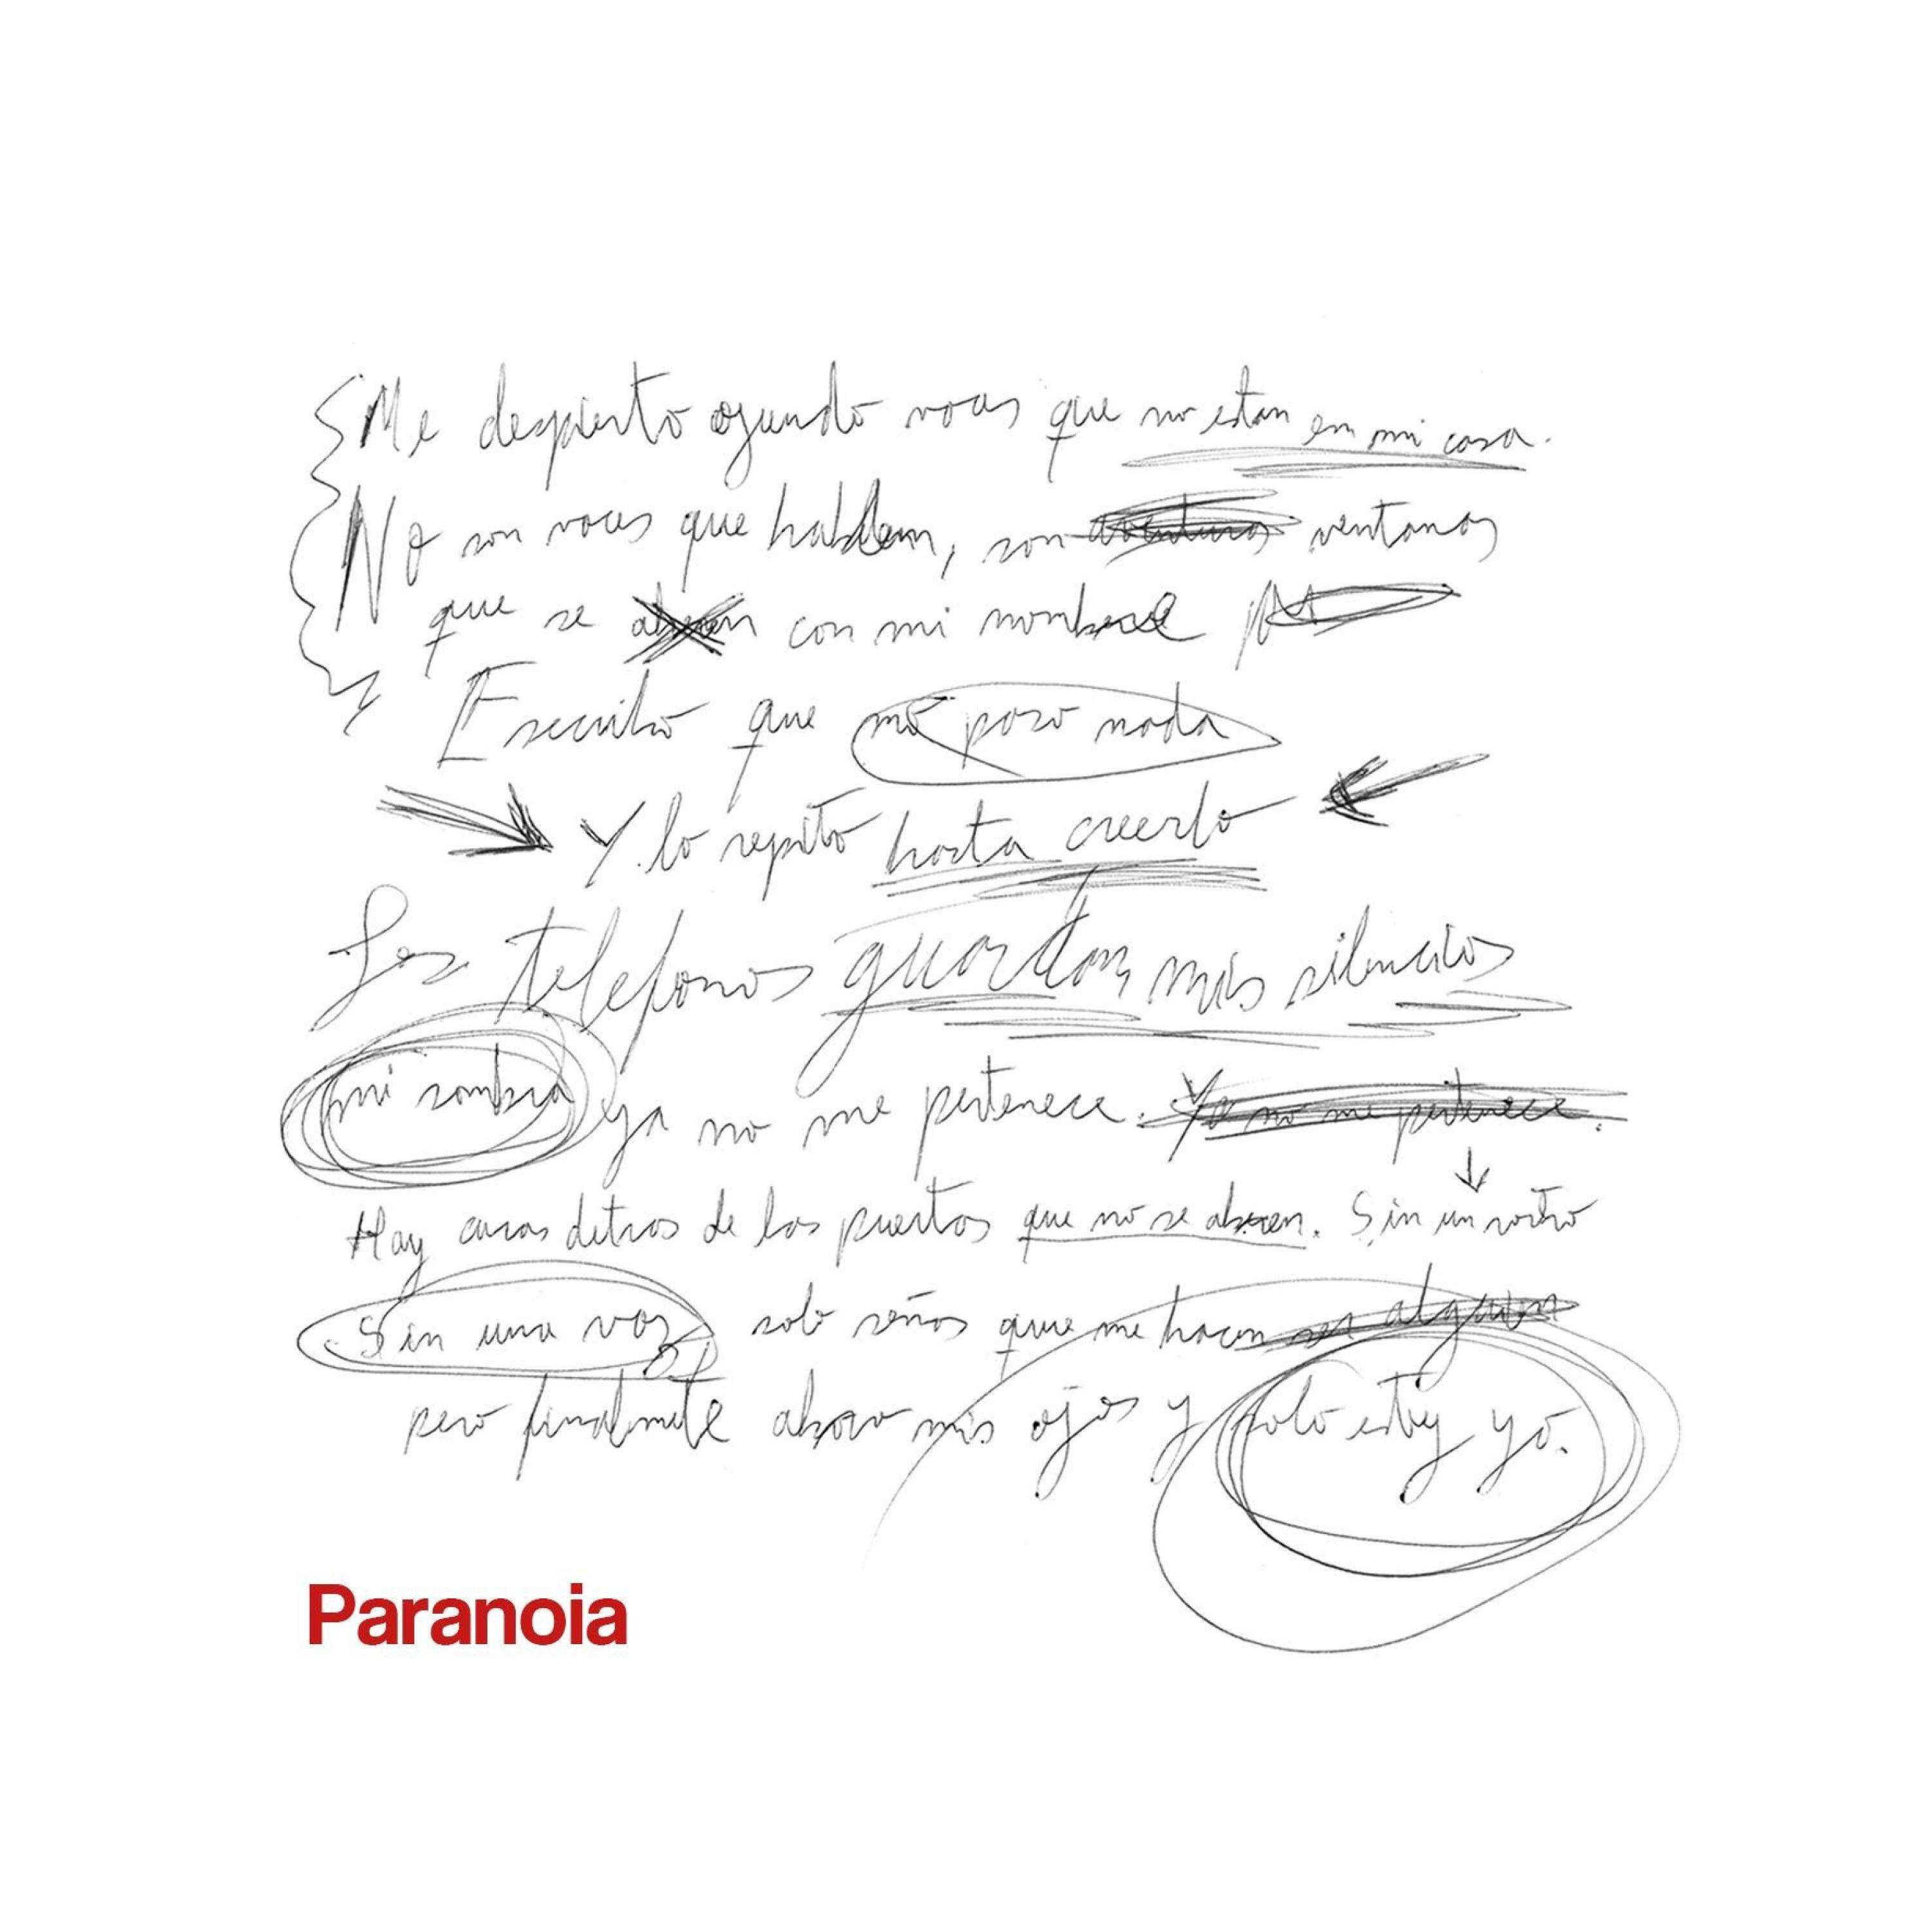 Me despierto oyendo voces que no estan en mi casa.
No son voces que hablan, son ventanas
que se abren con mi nombre
Escribo que no paso nada
Y lo repito hasta creerlo
Los telefonos guardan mis silencios
mi sombra ya no me pertenece. Ya no me pertenece.
Hay caras detras de las puertas que no se abren. Sin un rostro
Sin una voz solo señas que me hacen ser alguien
pero finalmente abro mis ojos y solo estoy yo.
Paranoia